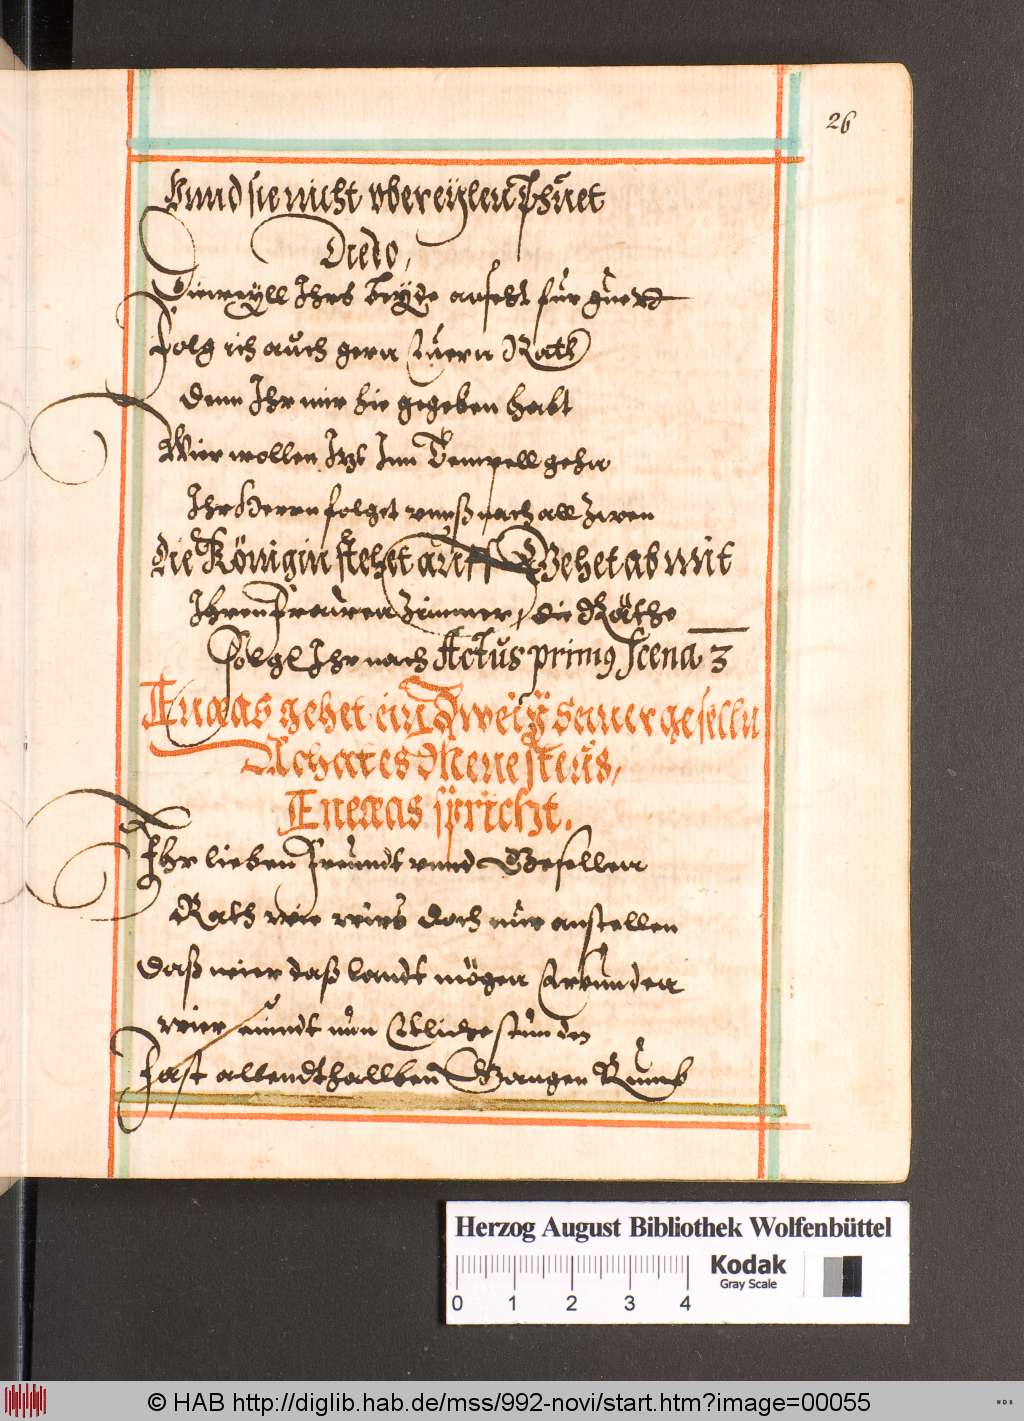 26
Vnnd sie nicht vbereylen Thuet
Diedo,
Dieweyll Ihrs beyde ansehet für guett
Folg ich auch gern Euern Rath
denn Ihr mir hie gegeben habt
Wier wollen Itzt Inn Tempell gehn
Ihr Herrn folget vnnß nach all Zwen
die Königin stehet auff Gehet ab mit
Ihren Frawen Zimmer, die Räthe
folgt Ihr nach Actus primus Scena 3
Eneas gehet ein Zweiy seiner geselln
Achates Menesteus,
Eneas spricht.
Ihr lieben Freundt vnnd Gesellen
Rath wie wirs doch nur anstellen
daß wier daß landt mögen Erkunden
wier seindt nun Etliche stunden
Fast allendthallben Gangen Rumb
Herzog August Bibliothek Wolfenbüttel
Kodak
Gray Scale
0 1 2 3 4
© HAB http://diglib.hab.de/mss/992-novi/start.htm?image=00055